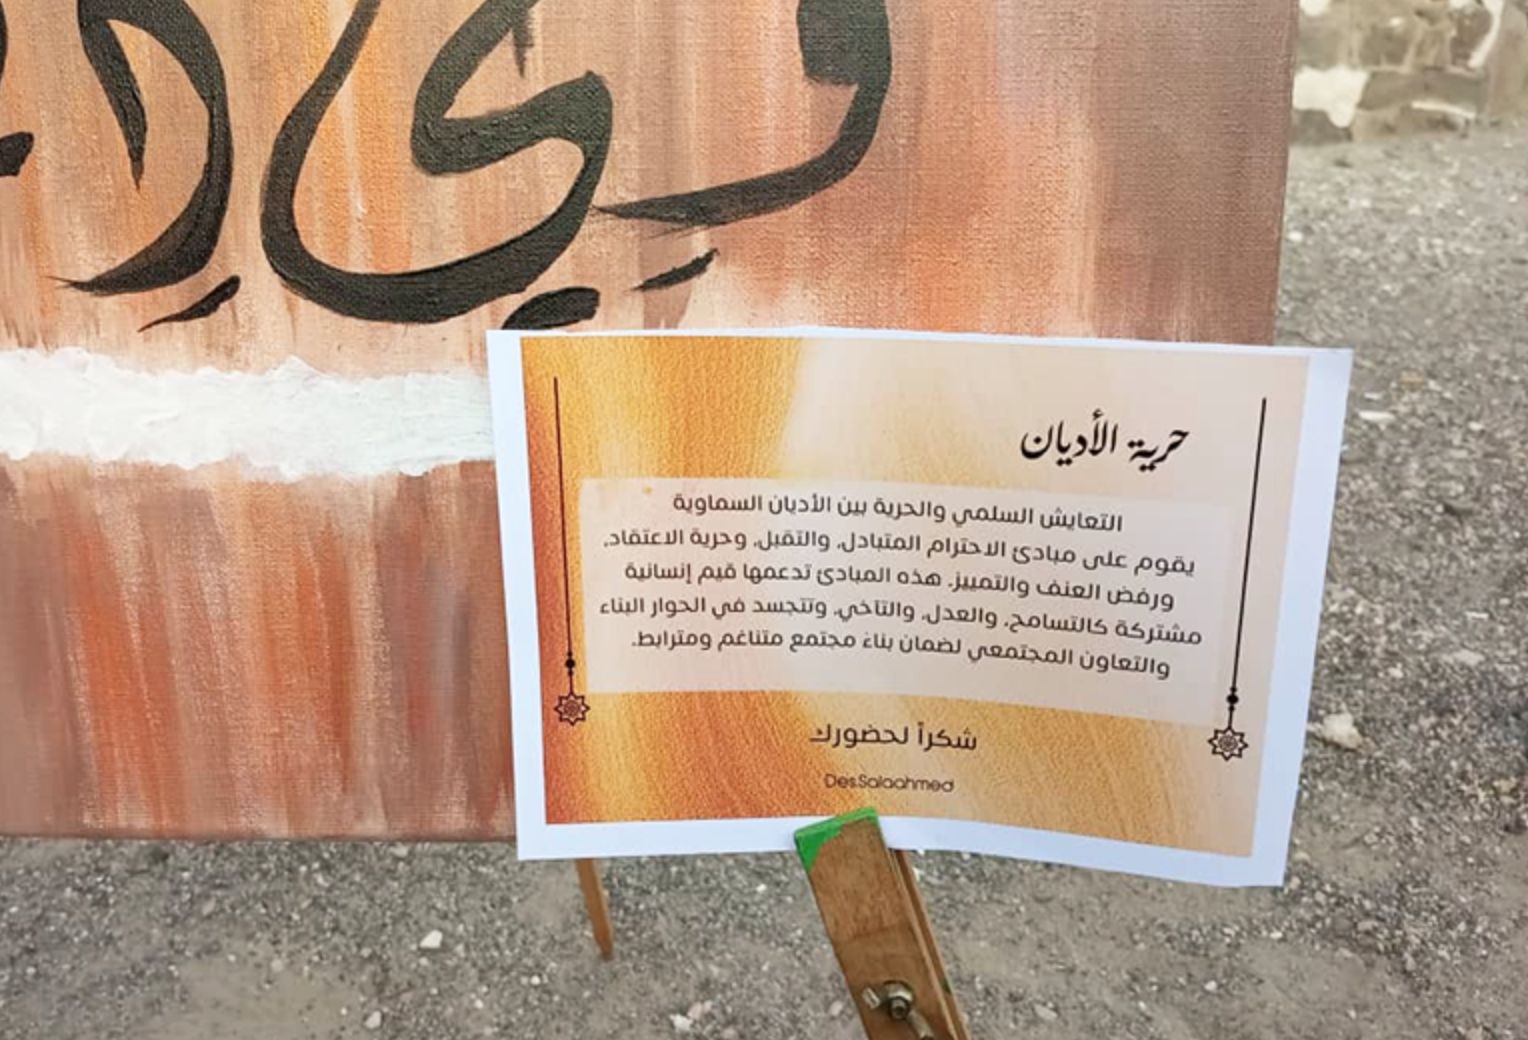 حرية الأديان
التعايش السلمي والحرية بين الأديان السماوية
يقوم على مبادئ الاحترام المتبادل، والتقبل، وحرية الاعتقاد،
ورفض العنف والتمييز. هذه المبادئ تدعمها قيم إنسانية
مشتركة كالتسامح، والعدل، والتآخي، وتتجسد في الحوار البناء
والتعاون المجتمعي لضمان بناء مجتمع متناغم ومترابط.
شكراً لحضورك
Des.Salaahmed